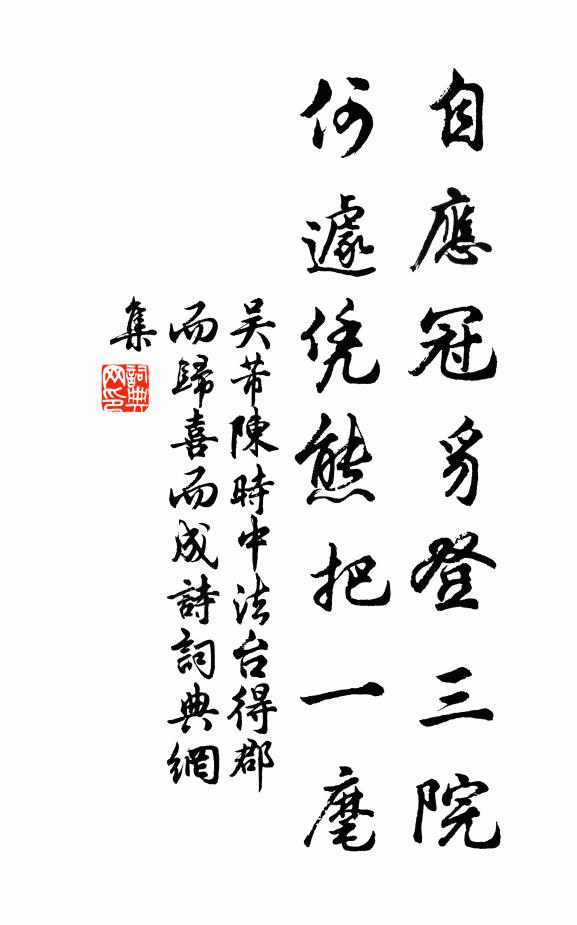 自應冠豸登三院
何遽凭熊把一麾
吴芾陳時中法台得郡
而歸喜而成詩詞典網
集
詞典
网印